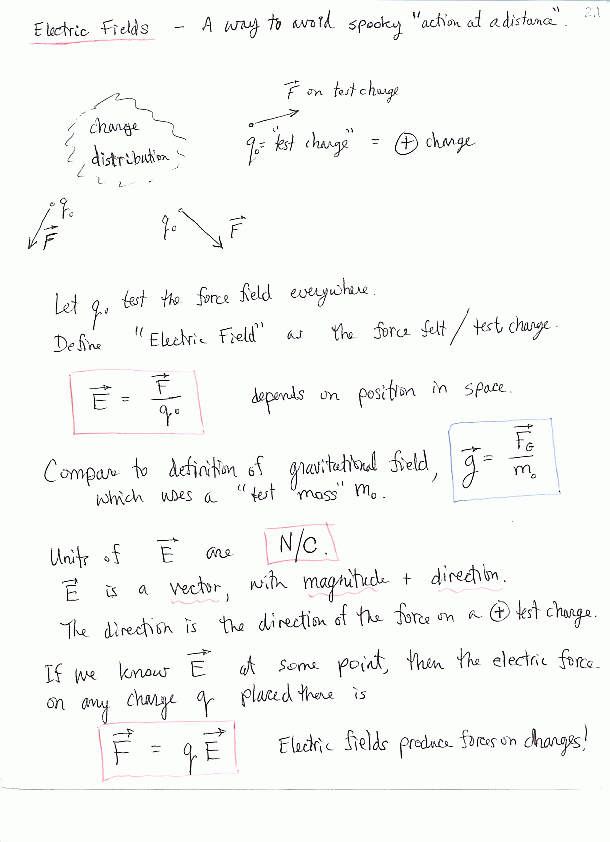 2.1
Electric Fields - A way to avoid spooky "action at a distance".
F⃗ on test charge
charge
distribution
q₀ = "test charge" = ⊕ charge
q₀
F⃗
q₀
F⃗
Let q₀ test the force field everywhere.
Define "Electric Field" as the force felt / test charge.
E⃗ = F⃗ / q₀ depends on position in space.
Compare to definition of gravitational field,
which uses a "test "mass" m₀.
g⃗ = F⃗_G / m₀
Units of E⃗ are N/C.
E⃗ is a vector, with magnitude + direction.
The direction is the direction of the force on a ⊕ test charge.
If we know E⃗ at some point, then the electric force
on any charge q placed there is
F⃗ = q E⃗ Electric fields produce forces on charges!